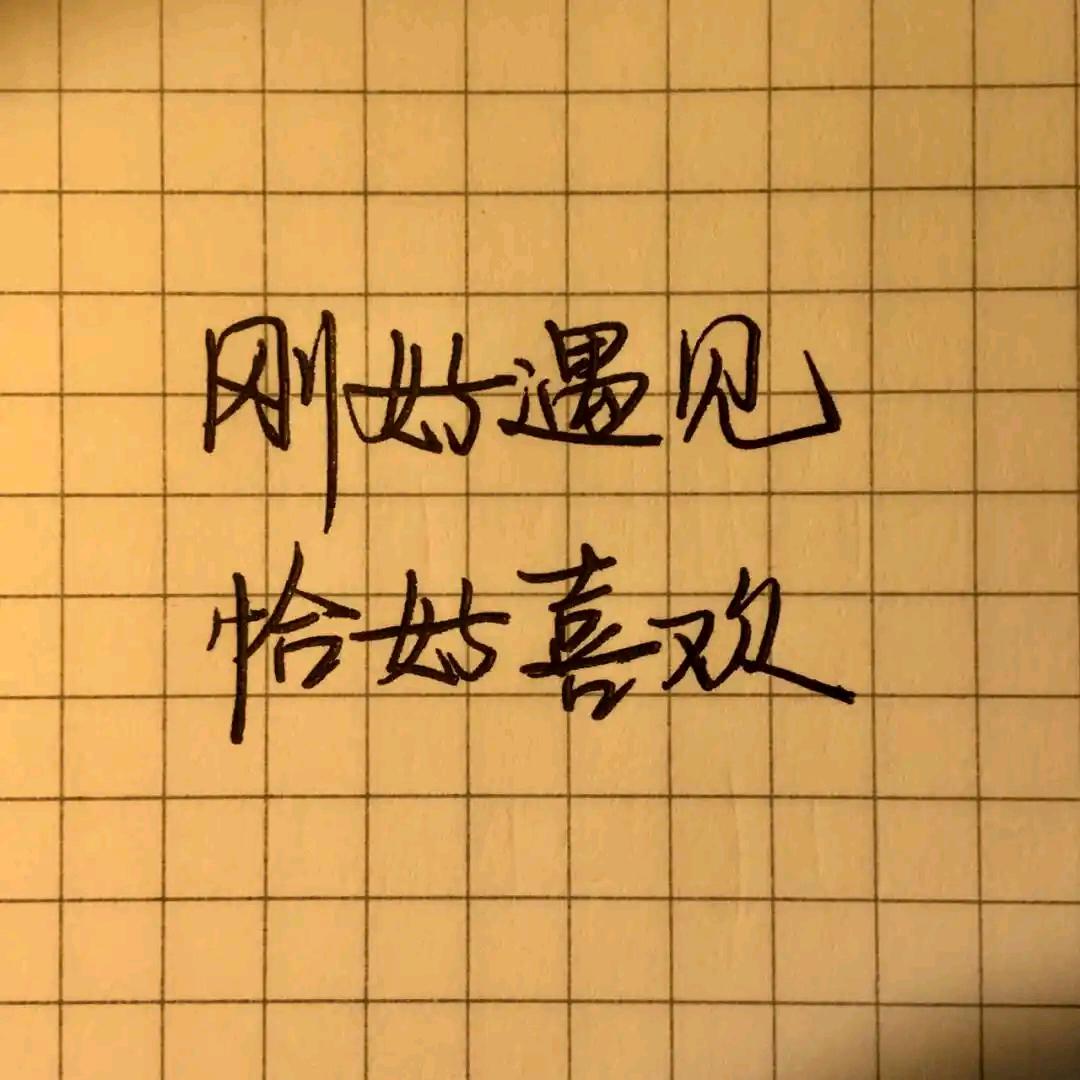 刚好遇见
恰好喜欢